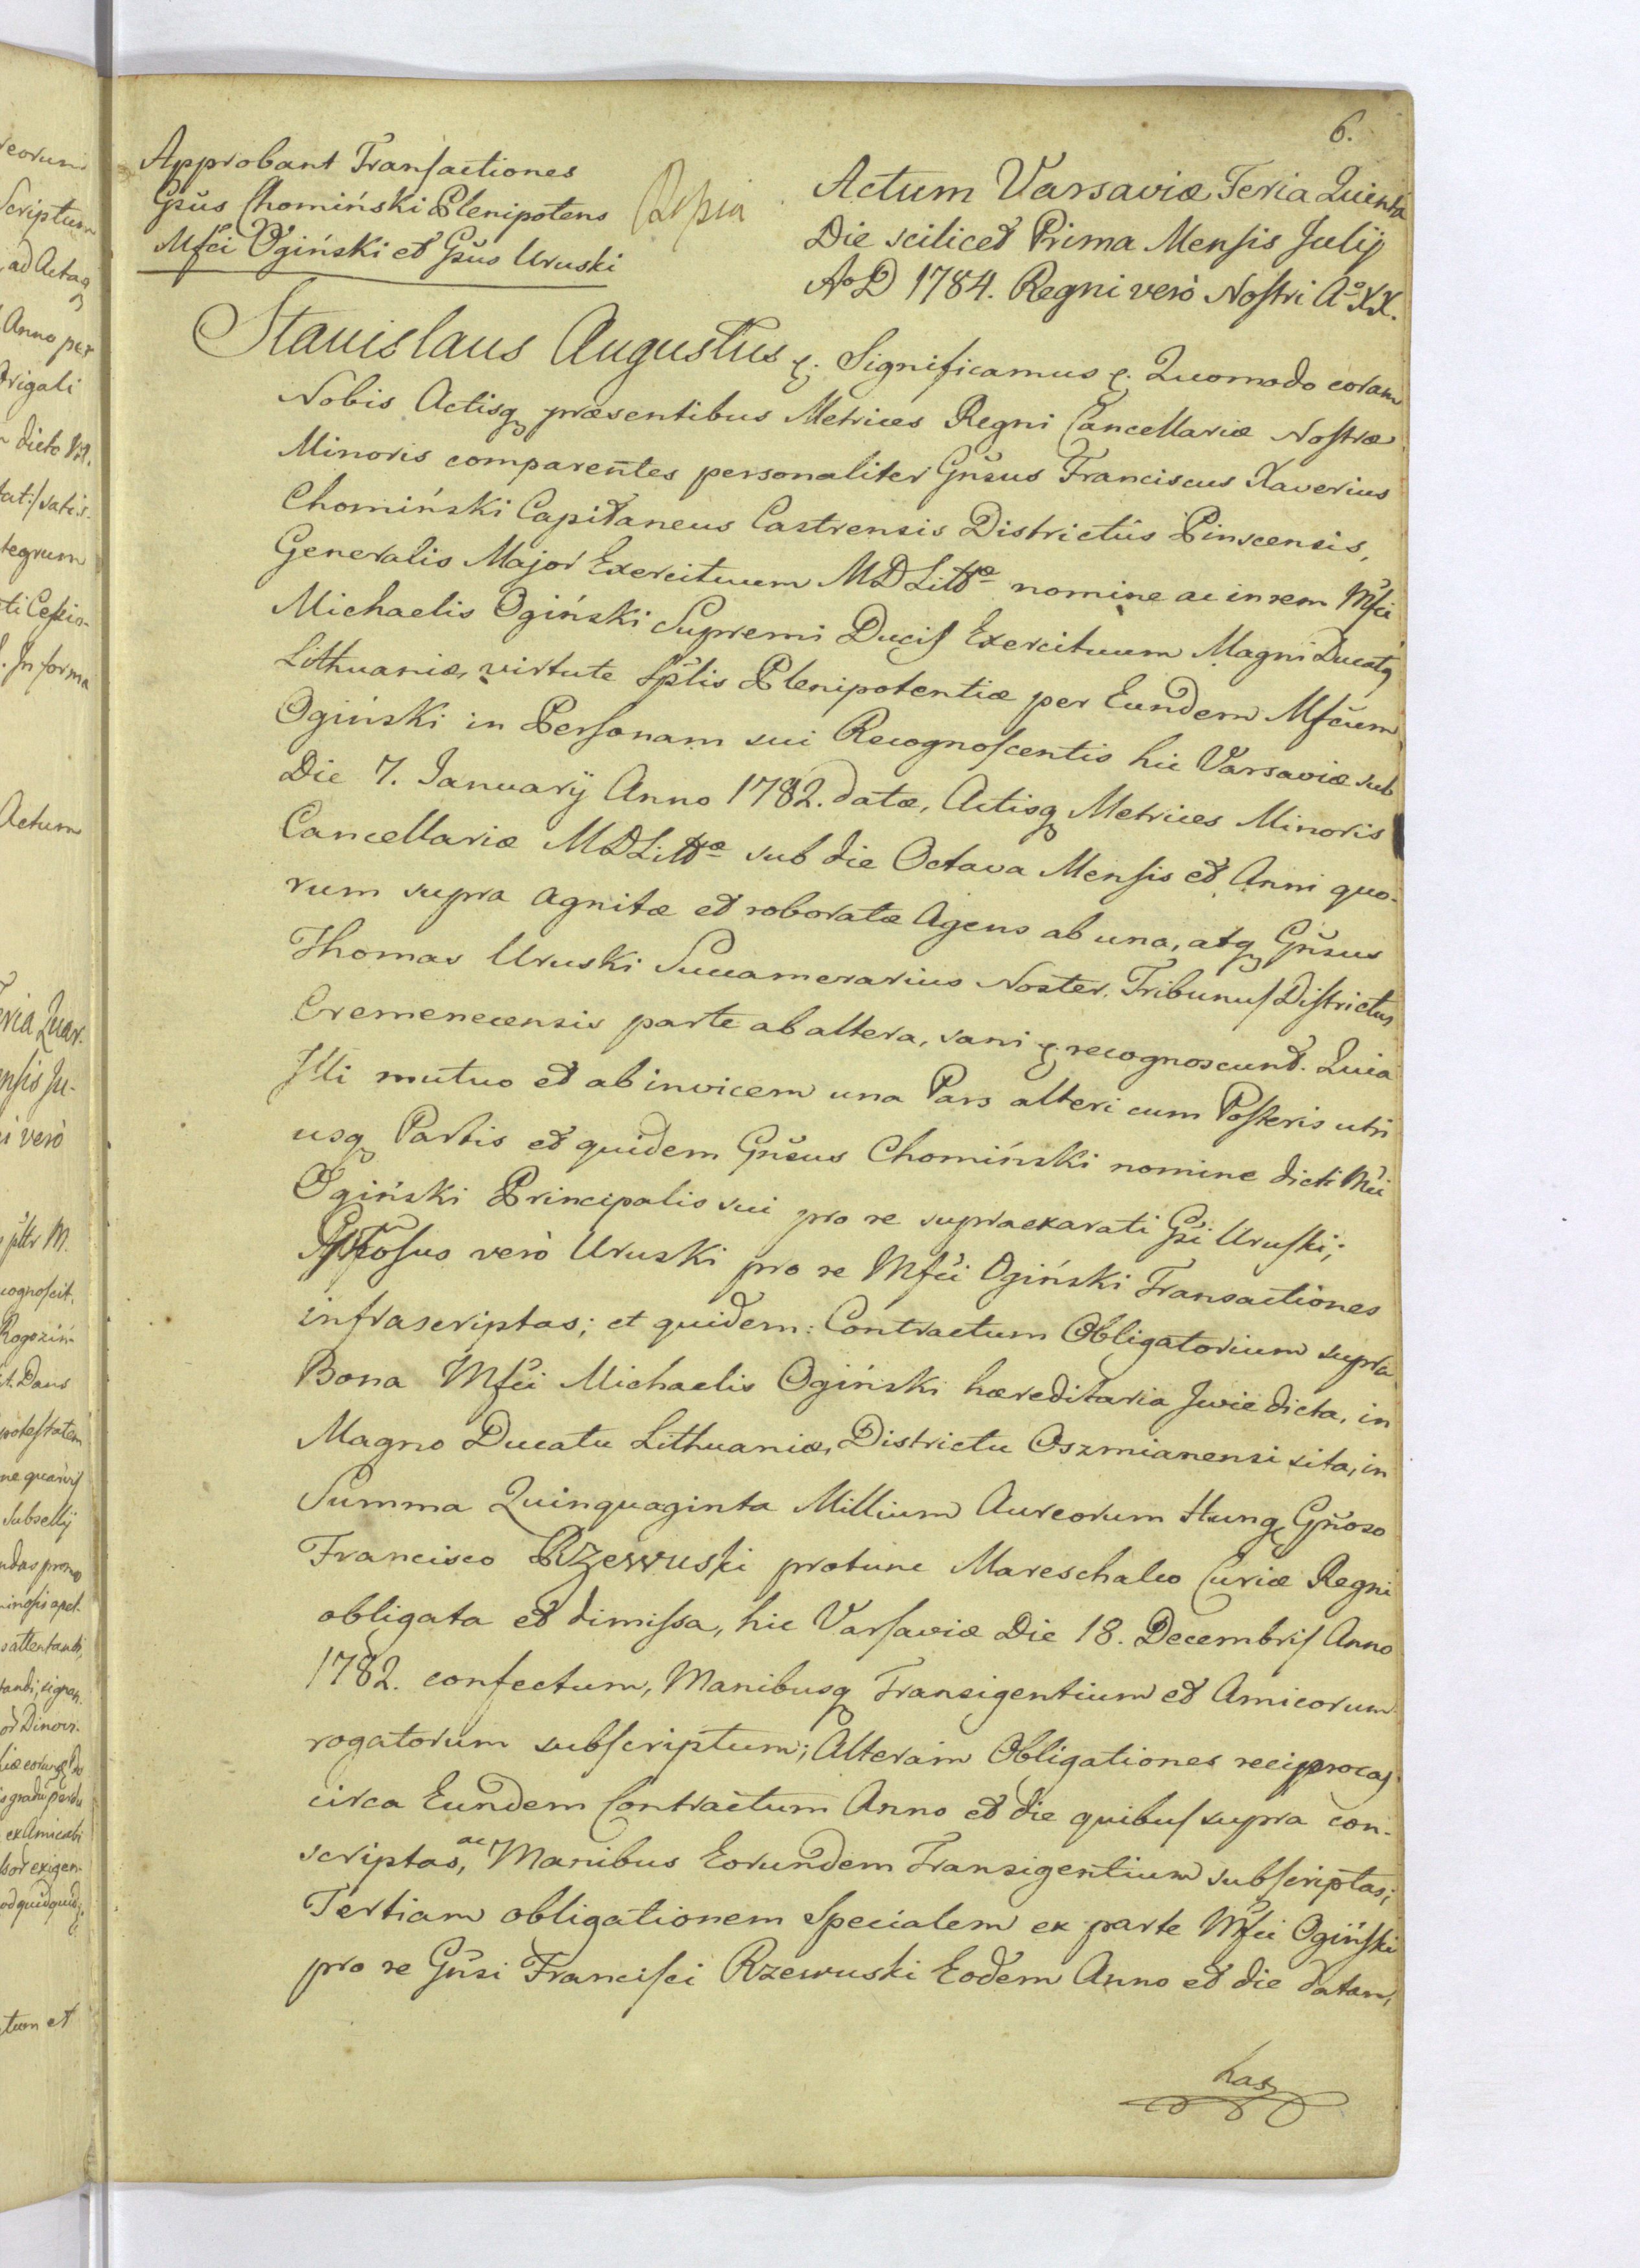 6.
Approbant Transactiones
Gsus Chomiński Plenipotens
Mfci Ogiński et Gsus Uruski
Actum Varsaviæ Feria Quinta
Die scilicet Prima Mensis Julij
AoD 1784. Regni verò Nostri Ao XX.
Stanislaus Augustus &. Significamus &. Quomodo coram
Nobis Actisq præsentibus Metrices Regni Cancellariæ Nostræ
Minoris comparentes personaliter Gnsus Franciscus Xaverius
Chomiński Capitaneus Castrensis Districtûs Pinscensis,
Generalis Major Exercituum MDLittæ nomine ac in rem Mfci
Michaelis Ogiński Supremi Ducis Exercituum Magni Ducatq
Lithuaniæ, virtute Splis Plenipotentiæ per Eundem Mfcum
Ogiński in Personam sui Recognoscentis hic Varsaviæ sub
Die 7. Januarÿ Anno 1782. datæ, Actisq Metrices Minoris
Cancellariæ MDLittæ sub die Octava Mensis et Anni quo-
rum supra agnitæ et roboratæ Agens ab una, atq Gnsus
Thomas Uruski Succamerarius Noster, Tribunus Districtus
Cremenecensis parte ab altera, sani &. recognoscunt. Quia
Illi mutuo et ab invicem una Pars alteri cum Posteris utri
usq Partis et quidem Gnsus Chomiński nomine dicti Mci
Ogiński Principalis sui pro re supraexarati Gsi Uruski;
verò Uruski pro re Mfci Ogiński Transactiones
infrascriptas; et quidem: Contractum Obligatorium supra
Bona Mfci Michaelis Ogiński hæreditaria Jwie dicta, in
Magno Ducatu Lithuaniæ, Districtu Oszmianensi sita, in
Summa Quinquaginta Millium Aureorum Hung Gnoso
Francisco Rzewuski protunc Mareschalco Curiæ Regni
obligata et dimissa, hic Varsaviæ Die 18. Decembris Anno
1782. confectum, Manibusq Transigentium et Amicorum
rogatorum subscriptum; Alteram Obligationes reciprocas
circa Eundem Contractum Anno et die quibus supra con-
scriptas, ac Manibus Eorundem Transigentium subscriptas;
Tertiam obligationem Specialem ex parte Mfci Ogiński
pro re Gnsi Francisci Rzewuski Eodem Anno et die datam,
has